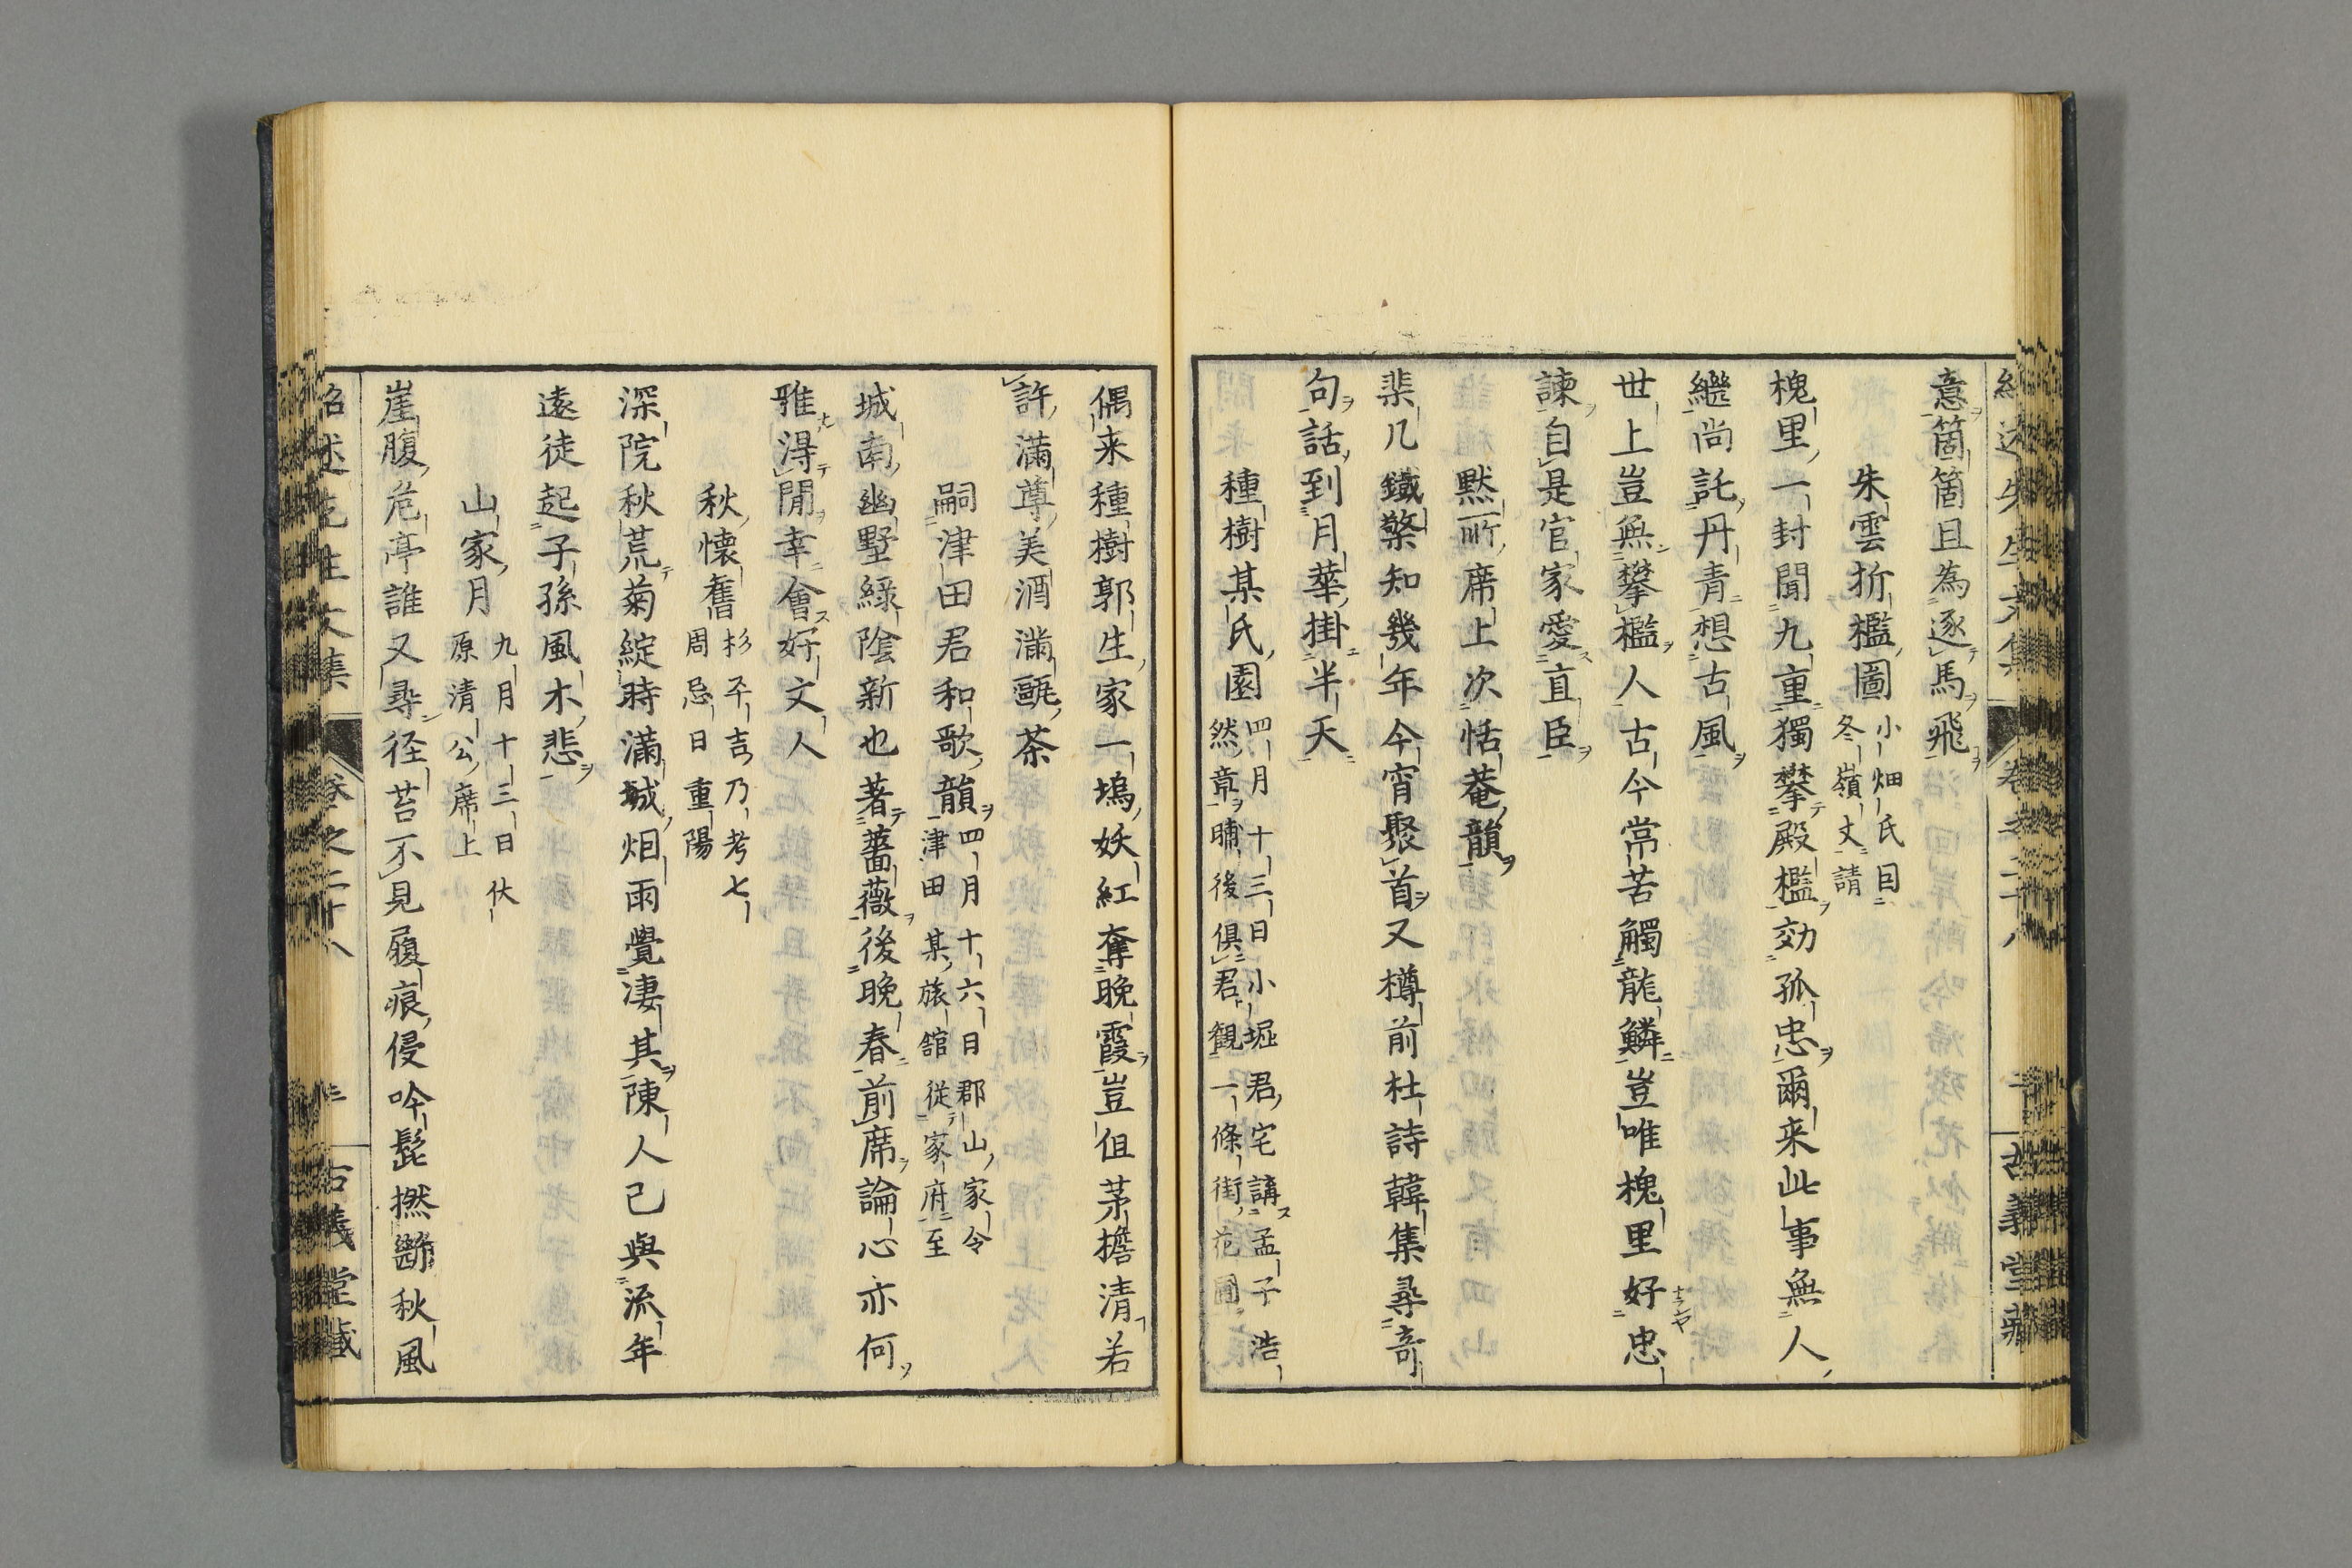 意箇箇且為逐馬飛
朱雲折檻圖 小畑氏目
冬嶺丈請
槐里一封聞九重獨攀殿檻効孤忠爾来此事無人
繼尚託丹青想古風
世上豈無攀檻人古今常苦觸龍鱗豈唯槐里好忠
諫自是官家愛直臣
黙所席上次恬菴韻
棐几鐵檠知幾年今宵聚首又樽前杜詩韓集尋奇
句話到月華掛半天
種樹某氏園 四月十三日小堀君宅講孟子浩
然章晡後俱君觀一條街花圃
偶来種樹郭生家一塢妖紅奪晚霞豈伹茅檐清若
許滿尊美酒滿甌茶
嗣津田君和歌韻 四月十六日郡山家令
津田某旅館従家府至
城南幽墅緑陰新也著薔薇後晚春前席論心亦何
雅淂閒幸會好文人
秋懷舊 杉平吉乃考七
周忌日重陽
深院秋荒菊綻時滿城烟雨覺凄其陳人已與流年
遠徒起子孫風木悲
山家月 九月十三日伏
原清公席上
崖腹危亭誰又尋径苔不見履痕侵吟髭撚斷秋風
紹述先生文集 卷之二十八 古義堂藏